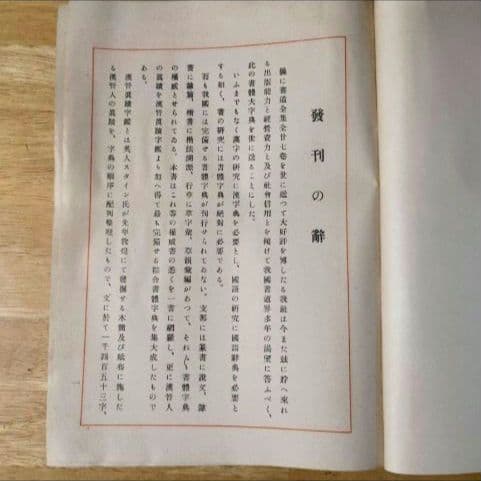 發刊の辭
曩に書道全集全廿七卷を世に送つて大好評を博したる我社は今また玆に貯へ來れ
る出版能力と經營資力と及び社會信用とを傾けて我國書道界多年の渴望に答ふべく、
此の書體大字典を世に送ることにした。
いふまでもなく漢字の研究に漢字典を必要とし、國語の研究に國語辭典を必要と
する如く、書の研究には書體字典が絕對に必要である。
而も我國には完備せる書體字典が刊行せられてゐない。支那には篆書に說文、隷
書に隷篇、楷書に楷法溯源、行草に草字彙、草韻彙編があつて、それ〲書體字典
の權威とせられてゐる。本書はこれ等の權威書の悉くを一書に網羅し、更に漢晉人
の眞蹟を漢晉眞蹟字鑑より加へ得て最も完備せる綜合書體字典を集大成したもので
ある。
漢晉眞蹟字鑑とは英人スタイン氏が先年敦煌にて發掘せる木簡及び紙卷に施した
る漢晉人の眞蹟を、字典の順序に配列整理したもので、文に於て一千四百五十三字、